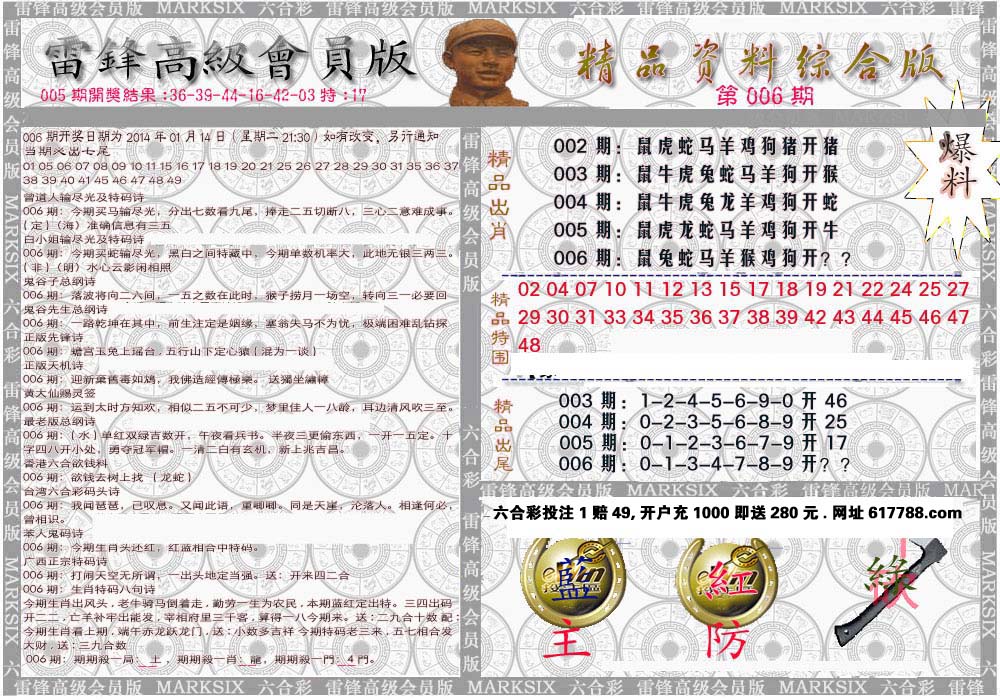 雷锋高级会员版 MARKSIX 六合彩 雷锋高级会员版 MARKSIX 六合彩 雷锋高级会员版 MARKSIX 六合彩 雷锋
雷鋒高級會員版
005期開獎結果:36-39-44-16-42-03 特:17
精品资料综合版
第 006 期
爆料
006 期开奖日期为 2014 年 01 月 14 日（星期二 21:30）如有改变，另行通知
当期必出七尾
01 05 06 07 08 09 10 11 15 16 17 18 19 20 21 25 26 27 28 29 30 31 35 36 37
38 39 40 41 45 46 47 48 49
曾道人输尽光及特码诗
006 期：今期买马输尽光，分出七数看九尾，捧走二五切断八，三心二意难成事。
{定}（海）准确信息有三五
白小姐输尽光及特码诗
006 期：今期买蛇输尽光，黑白之间特藏中，今期单数机率大，此地无银三两三。
{非}（明）水心云影闲相照
鬼谷子总纲诗
006 期：落波将问二六间，一五之数在此时，猴子捞月一场空，转向三一必要回
鬼谷先生总纲诗
006 期：一路乾坤在其中，前生注定是姻缘，塞翁失马不为忧，极端困难乱钻探
正版先锋诗
006 期：蟾宫玉兔上瑶台，五行山下定心猿{混为一谈}
正版天机诗
006 期：迎新棄舊毒如鴆，我佛造經傳極樂。 送獨坐繡幛
黄大仙赐灵签
006 期：运到太时方知欢，相似二五不可少，梦里佳人一八龄，耳边清风吹三至。
最老版总纲诗
006 期：{水}单红双绿吉数开，午夜看兵书。半夜三更偷东西，一开一五定。十
字四八开小处，勇夺冠军帽。一清二白有玄机，新上兆吉昌。
香港六合欲钱料
006 期：欲钱去树上找 {龙蛇}
台湾六合彩码头诗
006 期：我闻琵琶，已叹息。又闻此语，重唧唧。同是天崖，沦落人。相逢何必，
曾相识。
苯人鬼码诗
006 期：今期生肖头还红，红蓝相合中特码。
广西正宗特码诗
006 期：打闹天空无所谓，一出头地定当强。送：开来四二合
006 期：生肖特码八句诗
今期生肖出风头，老牛骑马倒着走，勤劳一生为农民，本期蓝红定出特。三四出码
开二二，亡羊补牢出能发，宰相府里三千客，算得一八今期来。送：二九合十数 配：
今期生肖看上期，端午赤龙跃龙门，送：小数多吉祥 今期特码老三来，五七相合发
大财，送：三九合数
006 期：期期殺一局：主，期期殺一肖：龍，期期殺一門：4 門。
精品出肖
002 期：鼠虎蛇马羊鸡狗猪开猪
003 期：鼠牛虎兔蛇马羊狗开猴
004 期：鼠牛虎兔龙羊鸡狗开蛇
005 期：鼠虎龙蛇马羊鸡狗开牛
006 期：鼠兔蛇马羊猴鸡狗开？？
精品特围
02 04 07 10 11 12 13 15 17 18 19 21 22 24 25 27
29 30 31 33 34 35 36 37 38 39 42 43 44 45 46 47
48
精品出尾
003 期：1-2-4-5-6-9-0 开 46
004 期：0-2-3-5-6-8-9 开 25
005 期：0-1-2-3-6-7-9 开 17
006 期：0-1-3-4-7-8-9 开？？
雷锋高级会员版 MARKSIX 六合彩 雷锋高级会员版 MARKSIX
六合彩投注 1 赔 49, 开户充 1000 即送 280 元 . 网址 617788.com
藍 紅 綠
主 防
雷锋高级会员版 MARKSIX 六合彩 雷锋高级会员版 MARKSIX 六合彩 雷锋高级会员版 MARKSIX 六合彩 雷锋